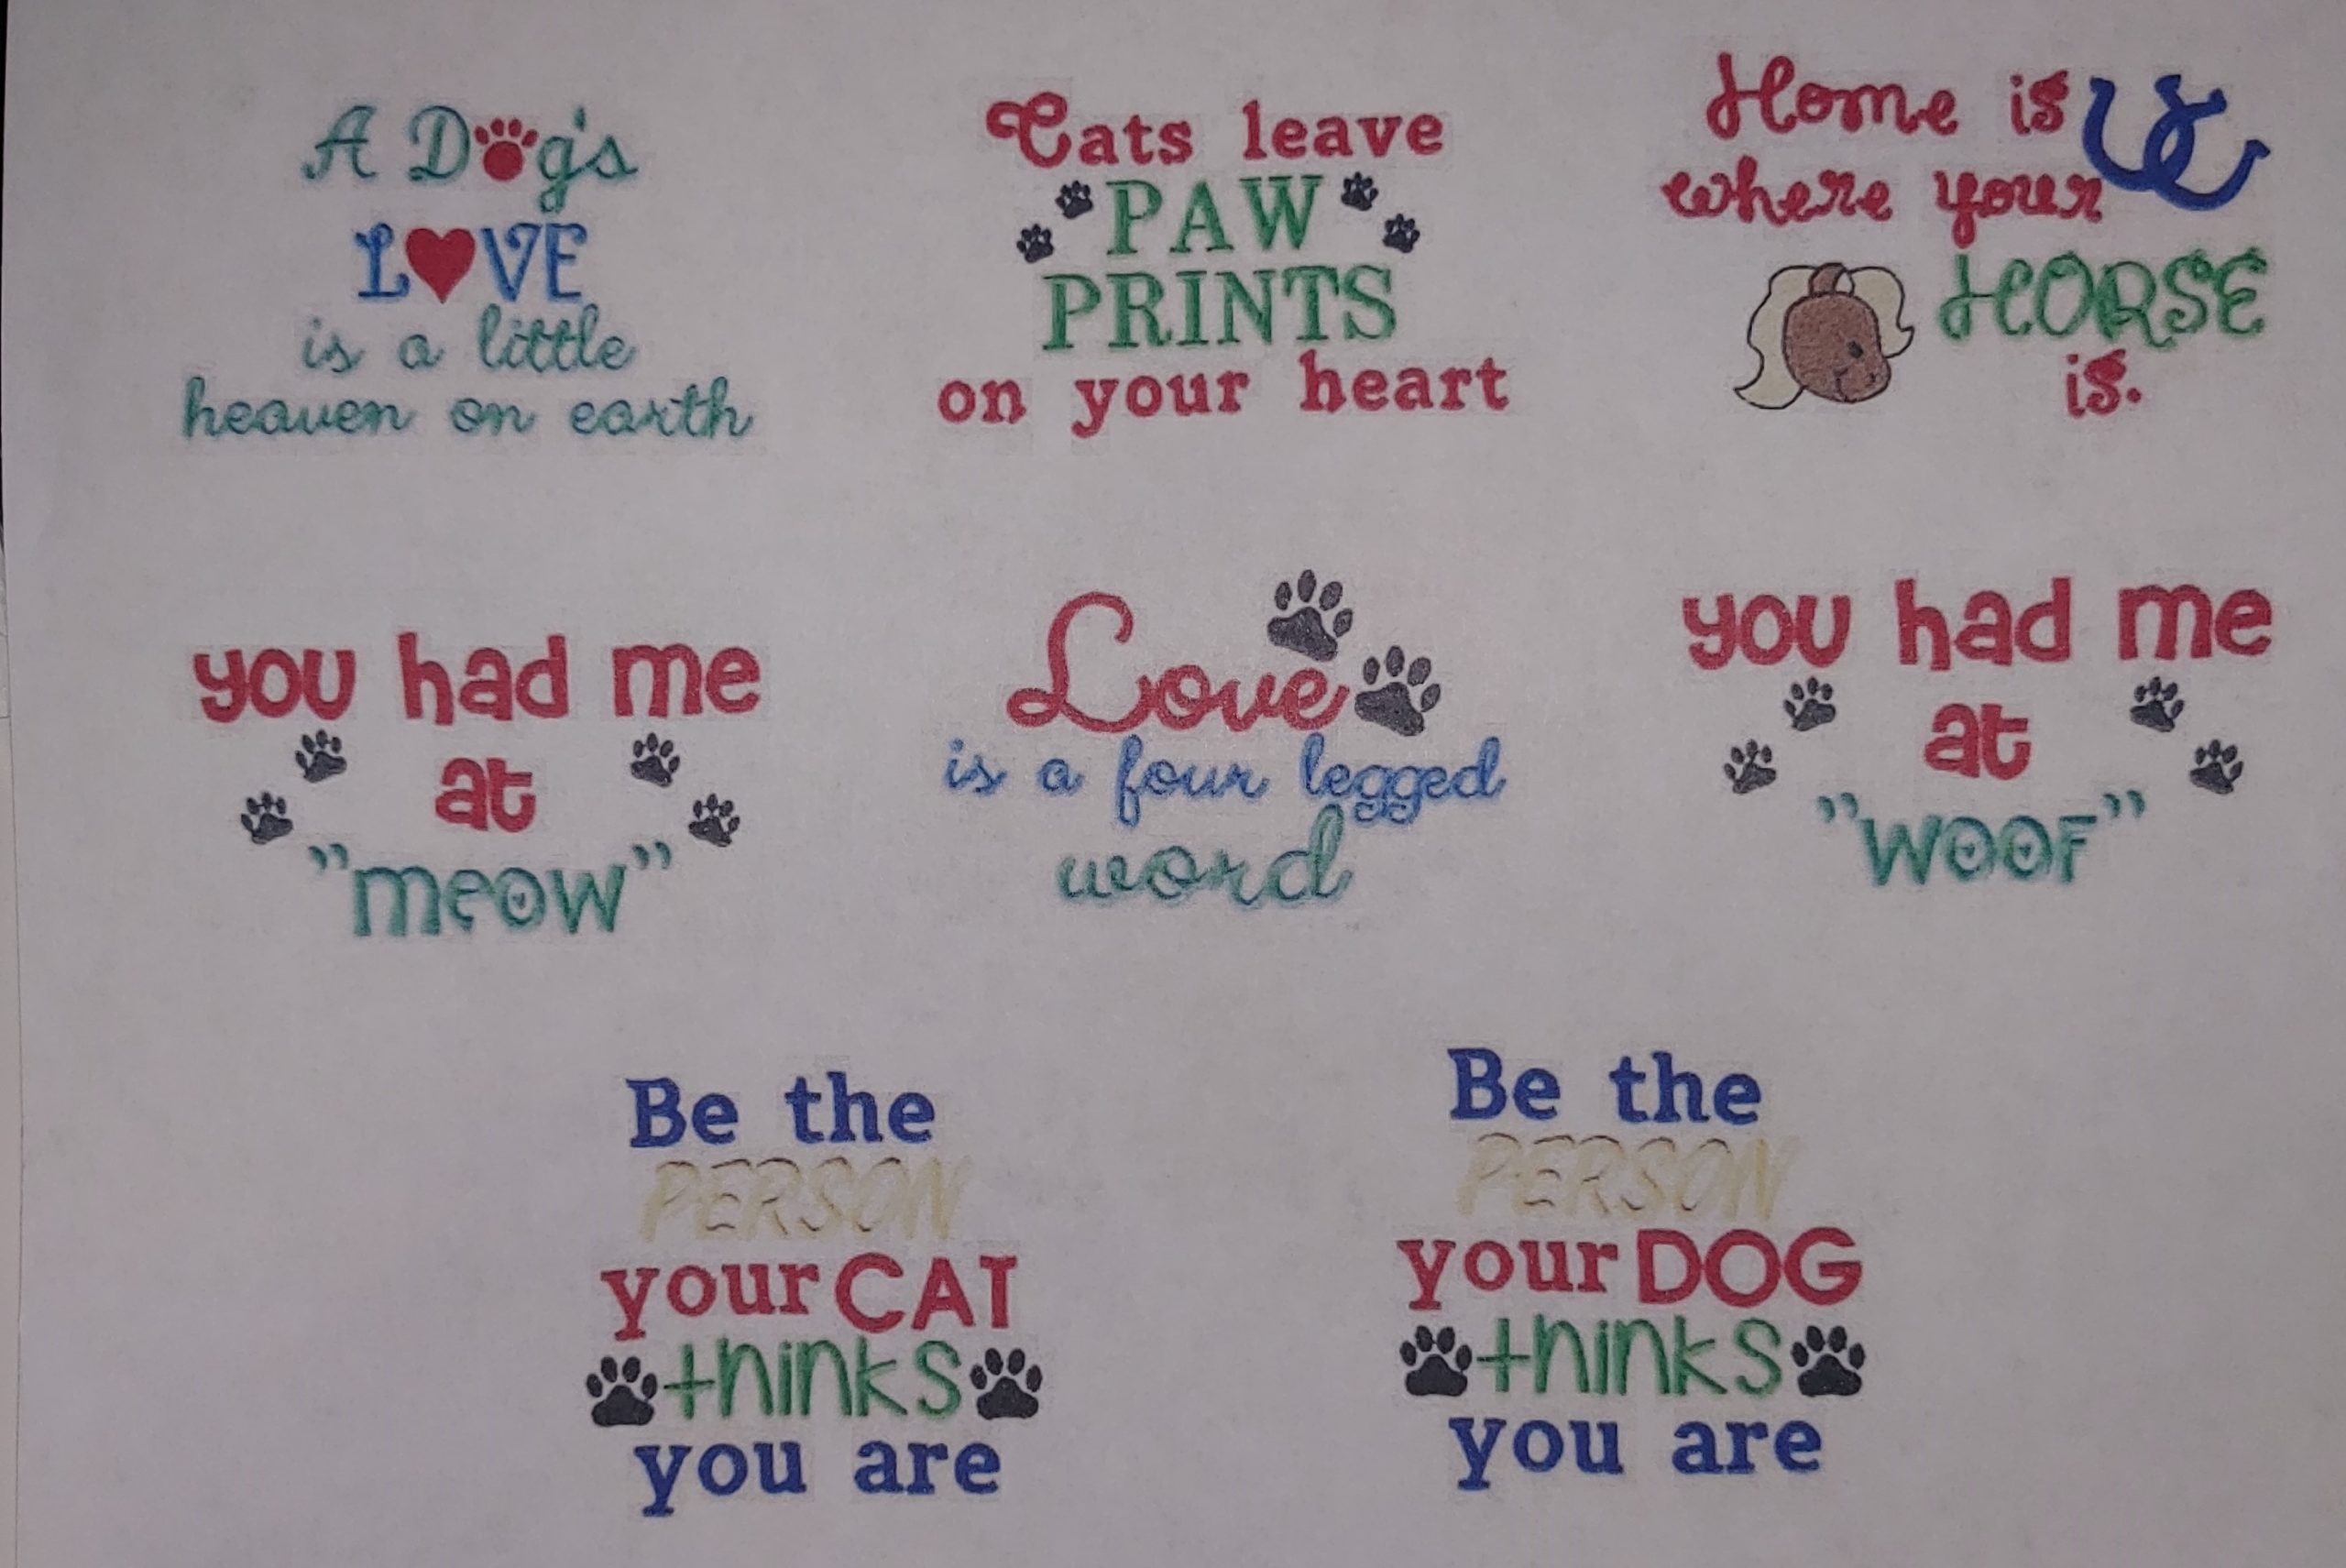 A Dog's
LOVE
is a little
heaven on earth
Cats leave
PAW
PRINTS
on your heart
Home is
where your
HORSE
is.
you had me
at
"meow"
Love
is a four legged
word
you had me
at
"WOOF"
Be the
PERSON
your CAT
thinks
you are
Be the
PERSON
your DOG
thinks
you are